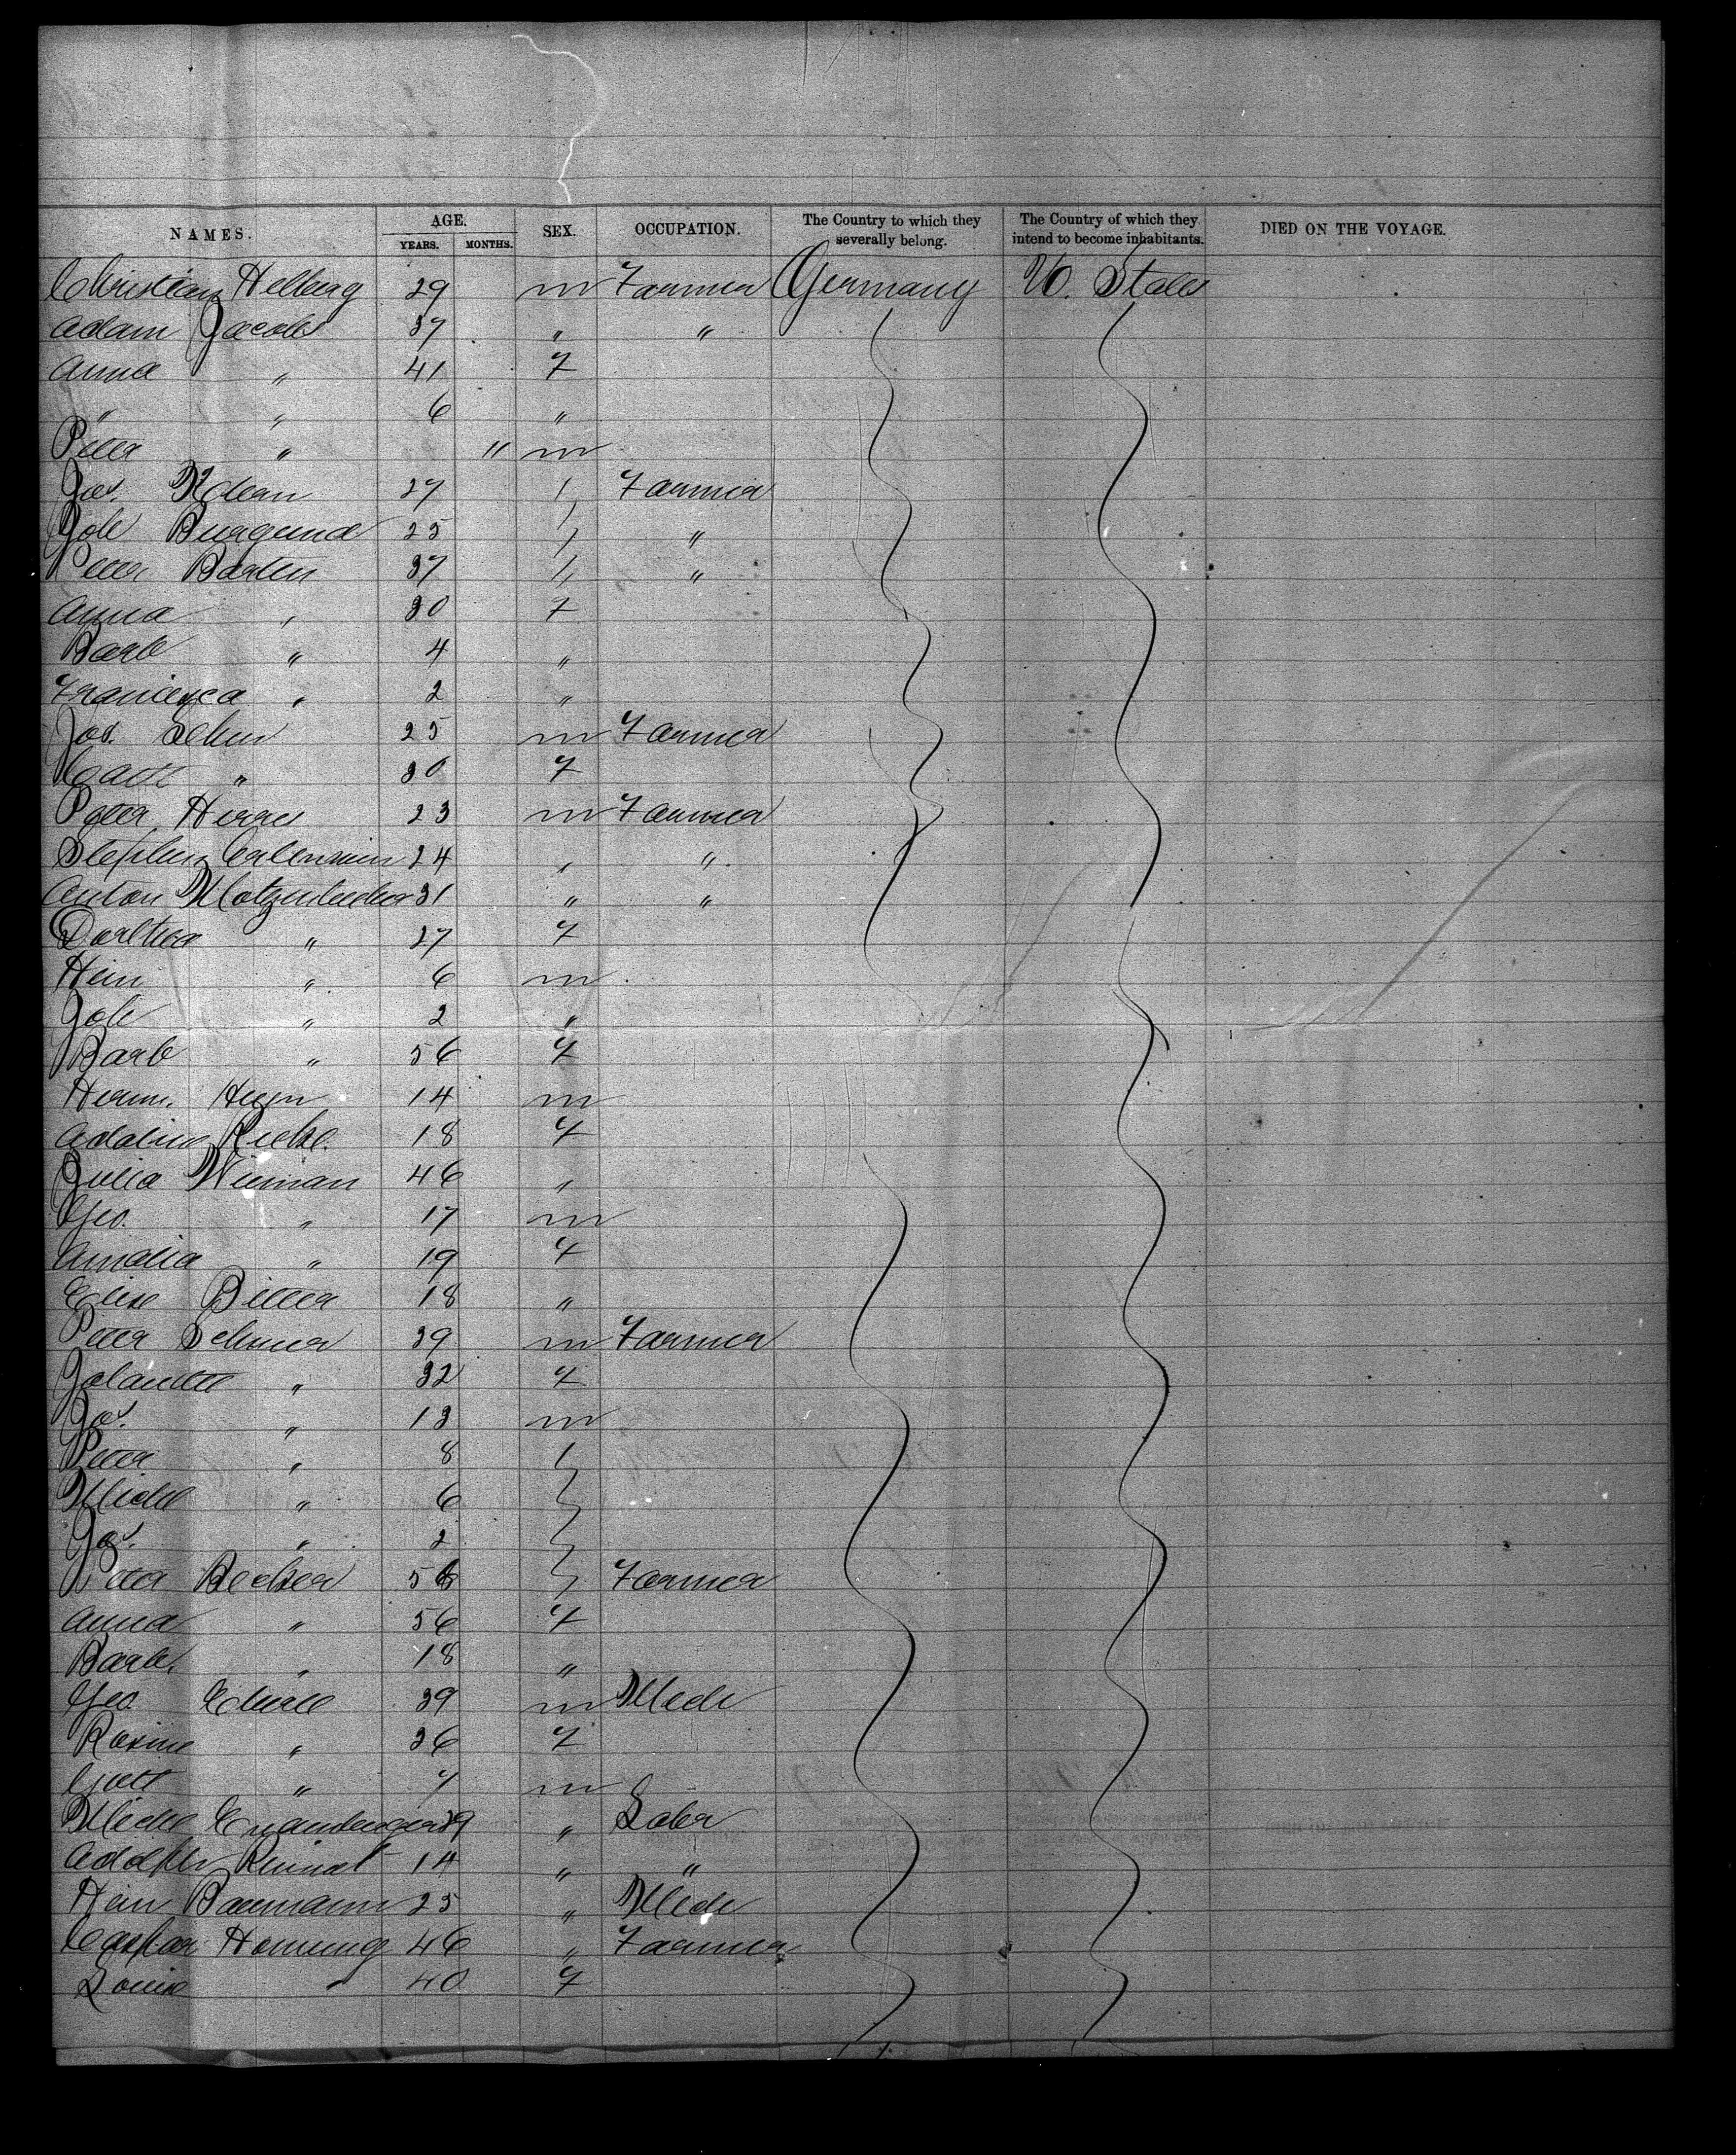 NAMES. AGE. SEX. OCCUPATION. The Country to which they severally belong. The Country of which they intend to become inhabitants. DIED ON THE VOYAGE.
YEARS. MONTHS.
Christian Helberg 29 m Farmer Germany U. States
Adam Jacobs 37 " "
Anna " 41 F
" " 6 "
Peter " 11 m
Jos. 27 Farmer
Joh Burgund 25 "
Peter Barten 37 "
Anna " 30 F
Barb " 4 "
Francisca " 2 "
Jos. 25 m Farmer
Cath " 30 F
Peter 23 m Farmer
Stephen 24 " "
Anton 31 " "
Dorthea " 27 F
Hein " 6 m
Joh " 2 "
Barb " 56 F
Herm. 14 m
Adeline 18 F
Julia Neiman 46 "
Geo. " 17 m
Amalia " 19 F
Elise Bitter 18 "
Peter 39 m Farmer
" 32 F
Jos. " 13 m
Peter " 8
Michl " 6
Jos. " 2
Peter Becker Farmer
Anna " 56 F
Barb. " 18 "
Geo. 39 m Mech
Rosine " 36 F
Gott " 7 m
Michl 39 " Labr
Adolph 14 " "
Hein Baumann 25 " Mech
Caspar Hornung 46 " Farmer
Louise " 40 F